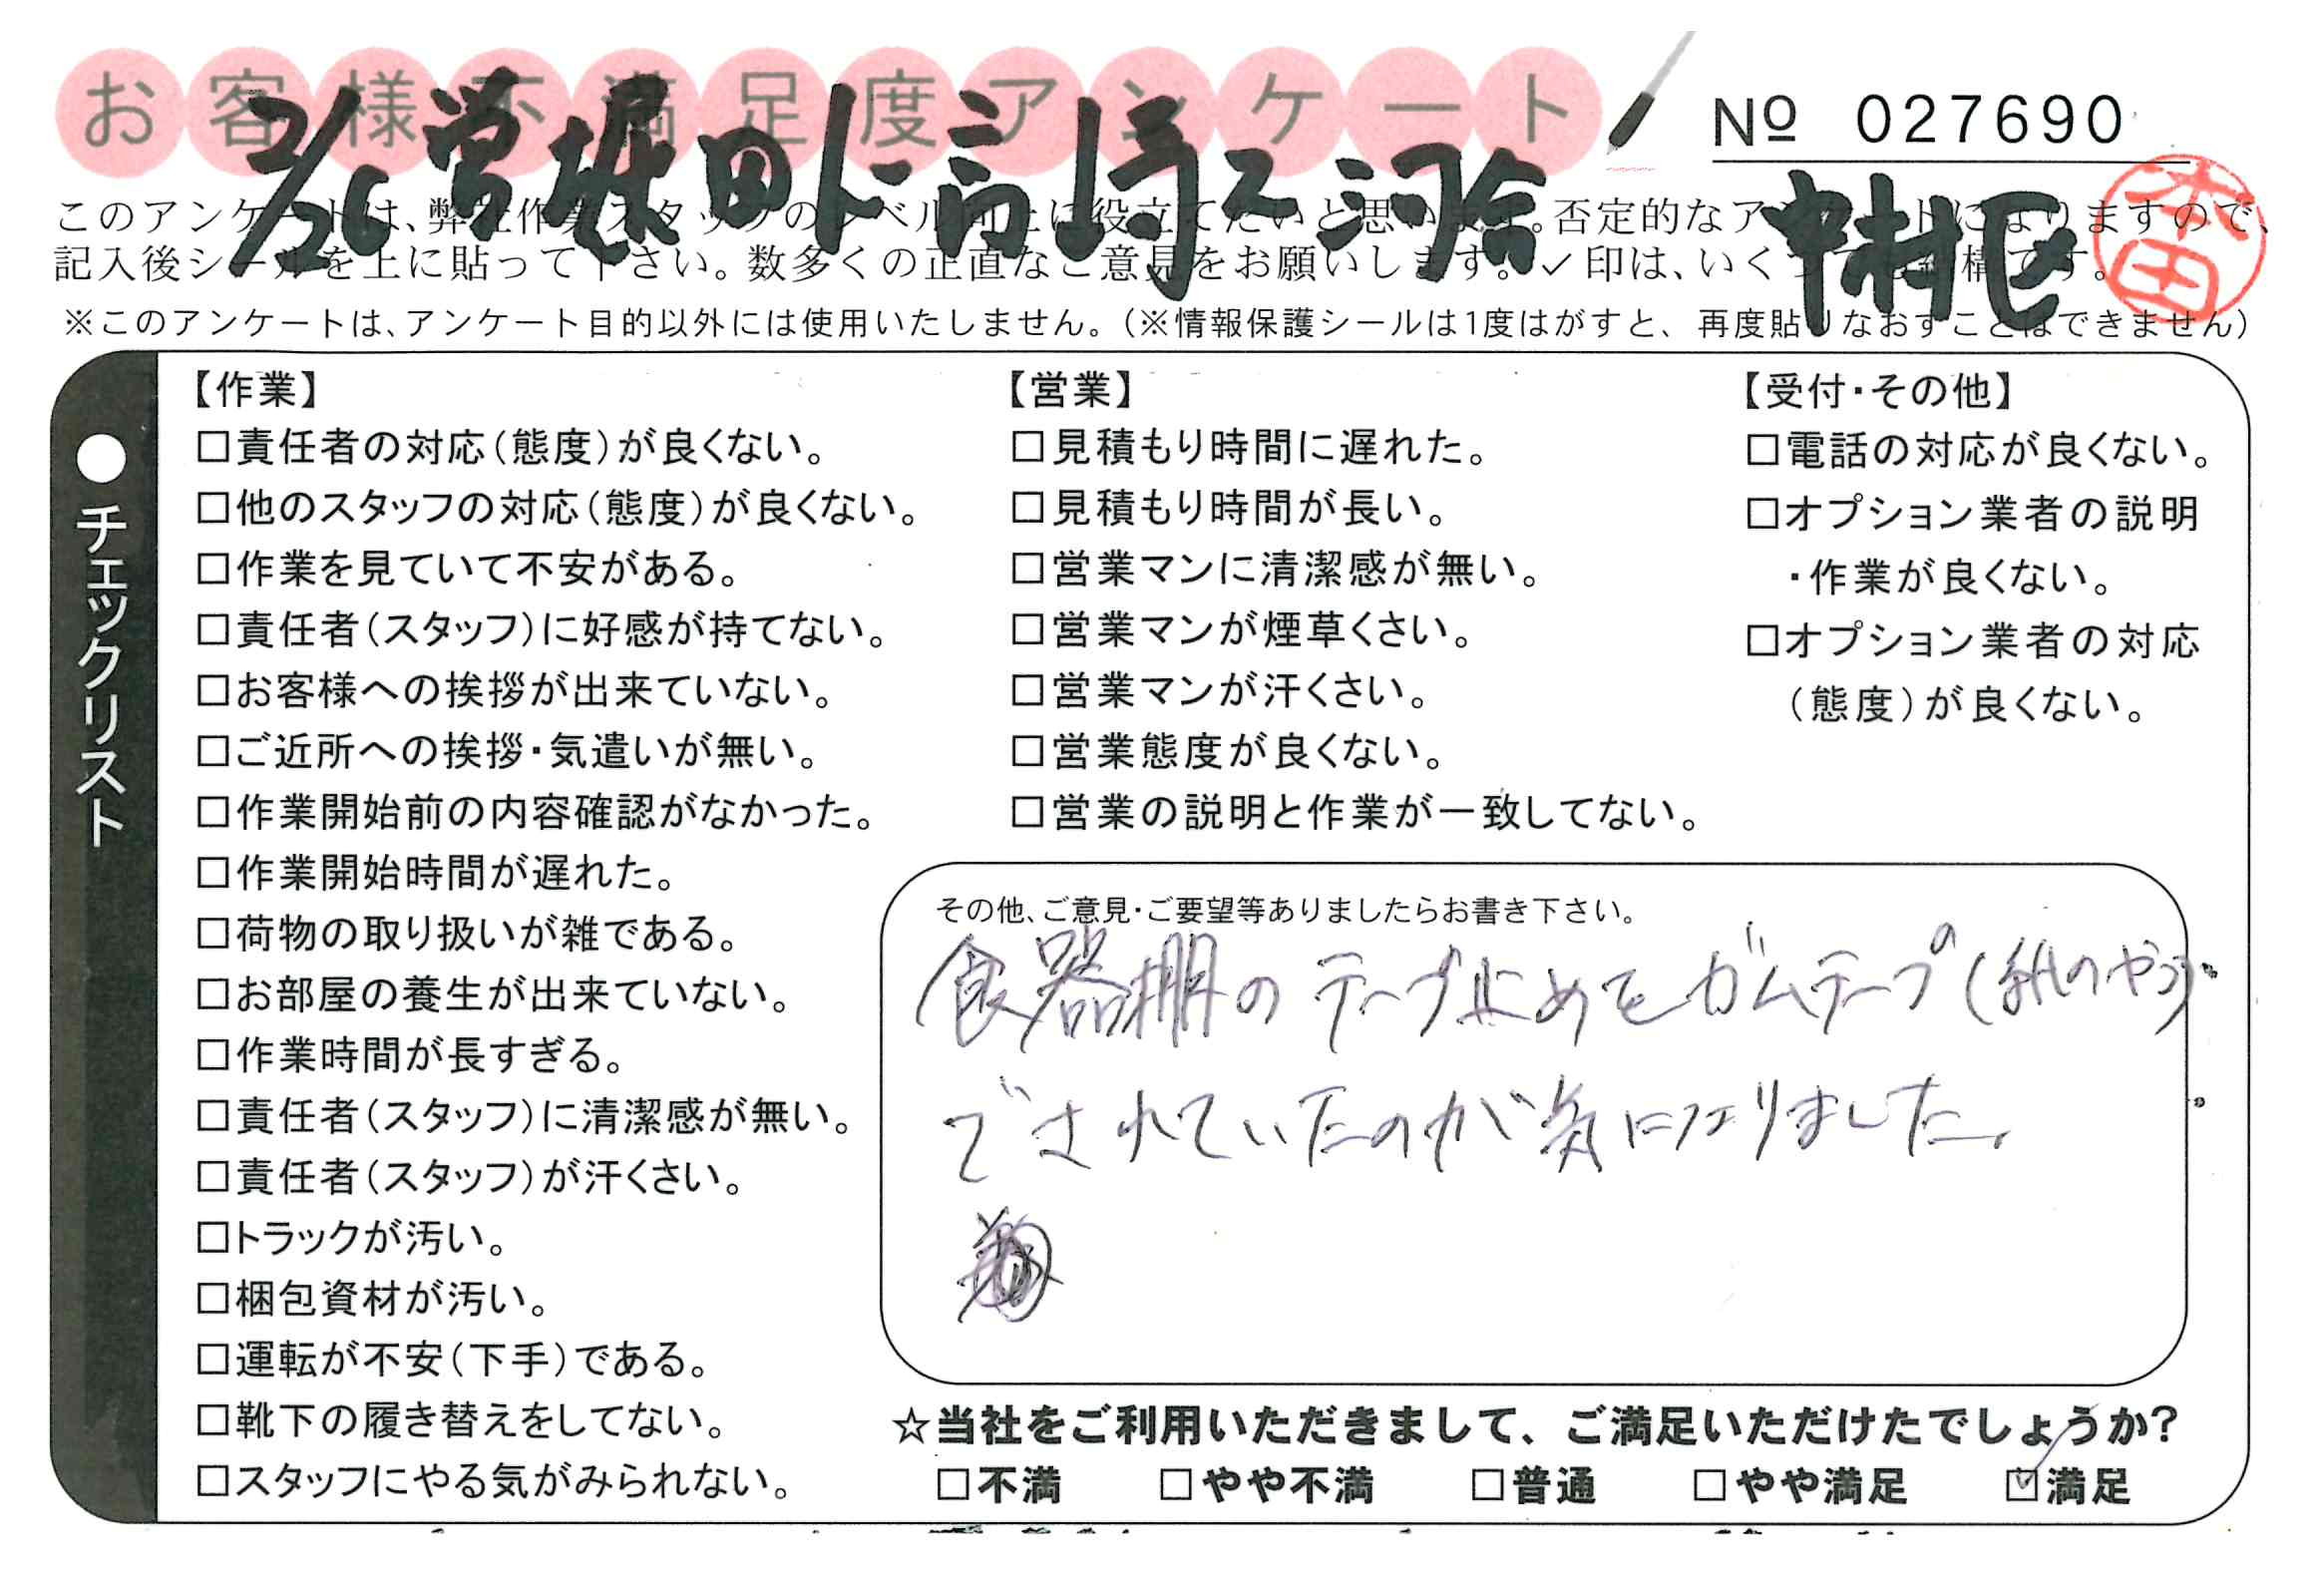 お客様不満足度アンケート
№ 027690
2/26 営堀田 ド高崎 2河合 中村区
本田
このアンケートは、弊社作業スタッフのレベル向上に役立てたいと思います。否定的なアンケートになりますので、
記入後シールを上に貼って下さい。数多くの正直なご意見をお願いします。✓印は、いくつでも結構です。
※このアンケートは、アンケート目的以外には使用いたしません。（※情報保護シールは1度はがすと、再度貼りなおすことはできません）
●チェックリスト
【作業】
□責任者の対応（態度）が良くない。
□他のスタッフの対応（態度）が良くない。
□作業を見ていて不安がある。
□責任者（スタッフ）に好感が持てない。
□お客様への挨拶が出来ていない。
□ご近所への挨拶・気遣いが無い。
□作業開始前の内容確認がなかった。
□作業開始時間が遅れた。
□荷物の取り扱いが雑である。
□お部屋の養生が出来ていない。
□作業時間が長すぎる。
□責任者（スタッフ）に清潔感が無い。
□責任者（スタッフ）が汗くさい。
□トラックが汚い。
□梱包資材が汚い。
□運転が不安（下手）である。
□靴下の履き替えをしてない。
□スタッフにやる気がみられない。
【営業】
□見積もり時間に遅れた。
□見積もり時間が長い。
□営業マンに清潔感が無い。
□営業マンが煙草くさい。
□営業マンが汗くさい。
□営業態度が良くない。
□営業の説明と作業が一致してない。
【受付・その他】
□電話の対応が良くない。
□オプション業者の説明
・作業が良くない。
□オプション業者の対応
（態度）が良くない。
その他、ご意見・ご要望等ありましたらお書き下さい。
食器棚のテープ止めをガムテープ（紙のやつ）
でされていたのが気になりました。
☆当社をご利用いただきまして、ご満足いただけたでしょうか？
□不満 □やや不満 □普通 □やや満足 ☑満足